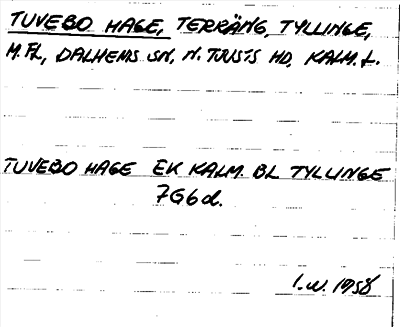 TUVEBO HAGE, TERRÄNG, TYLLINGE,
M.FL, DALHEMS SN, N. TJUSTS HD, KALM. L.
TUVEBO HAGE EK KALM. BL TYLLINGE
7G6d.
1958